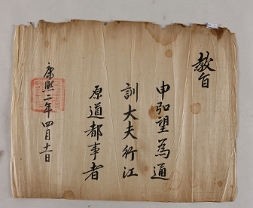 教旨
申弘望為通
訓大夫行江
原道都事者
康熙二年四月十一日